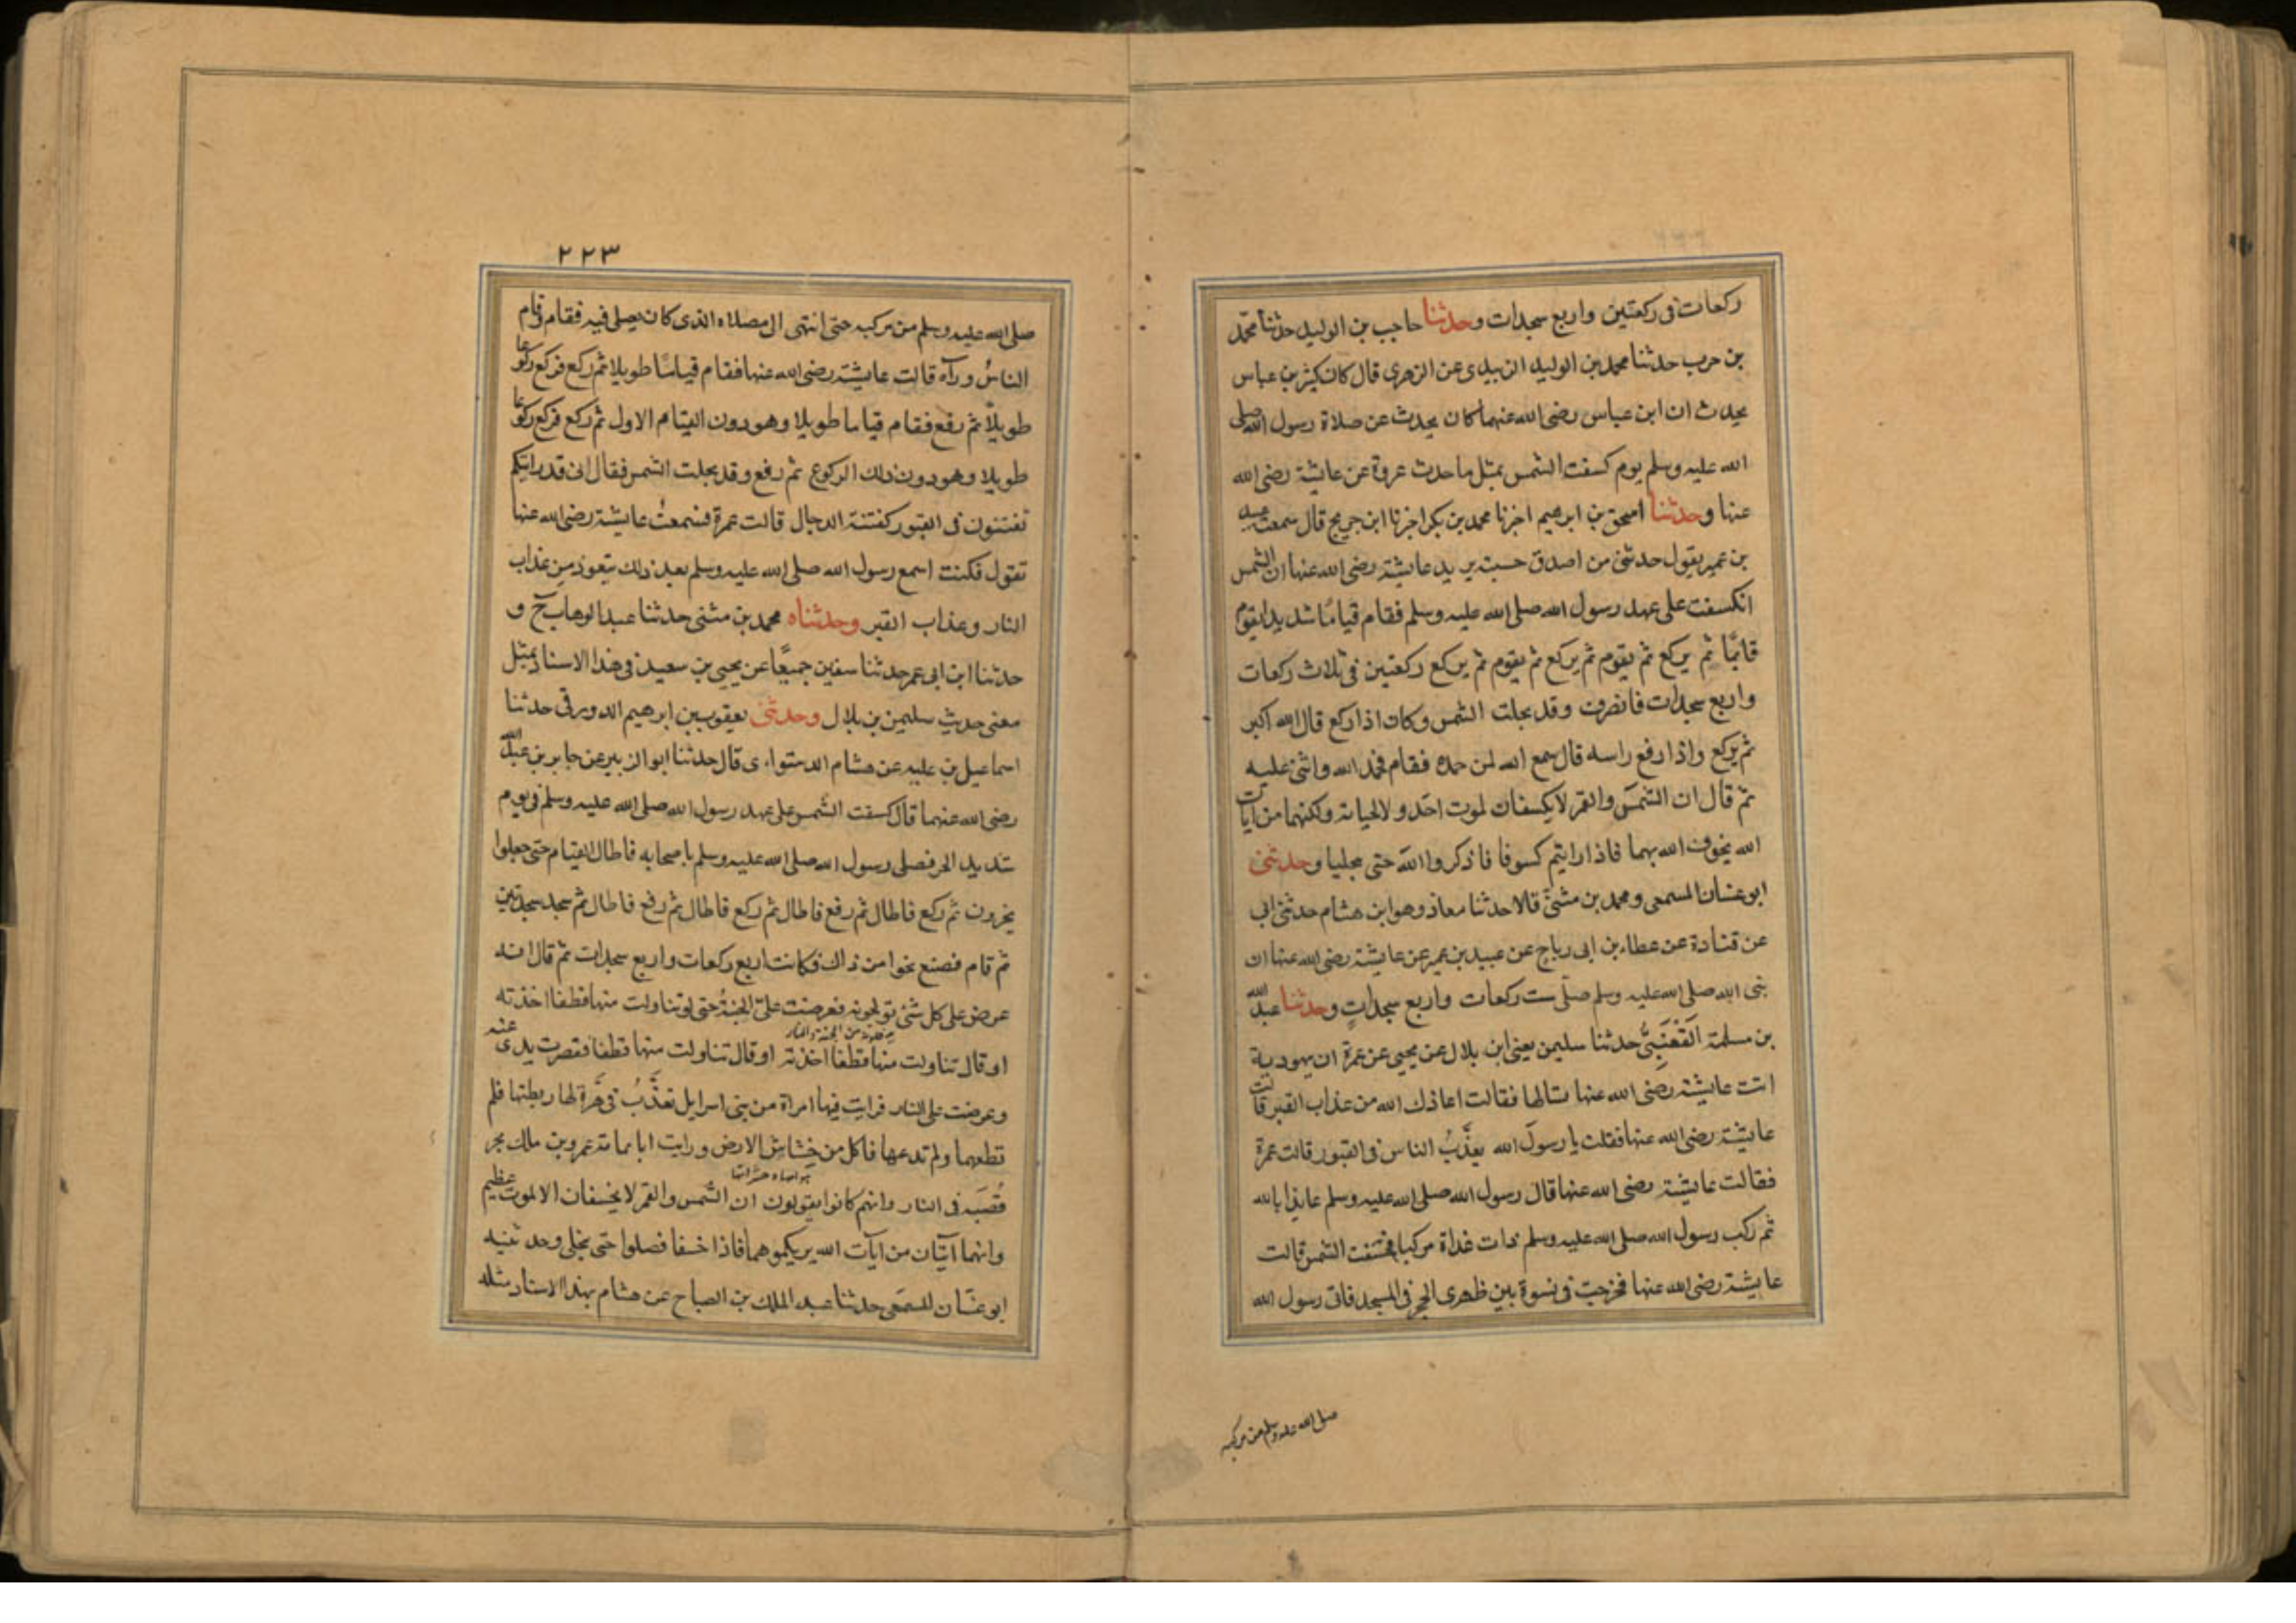 ركعات في ركعتين واربع سجدات وحدثنا حاجب بن الوليد حدثنا محمد
بن حرب حدثنا محمد بن الوليد الزبيدى عن الزهرى قال كان كثير بن عباس
يحدث ان ابن عباس رضى الله عنهما كان يحدث عن صلاة رسول الله صلى
الله عليه وسلم يوم كسفت الشمس بمثل ما حدث عروة عن عايشة رضى الله
عنها وحدثنا اسحق بن ابرهيم اخبرنا محمد بن بكر اخبرنا ابن جريج قال سمعت عبيد
بن عمير يقول حدثنى من اصدق حسبت يريد عايشة رضى الله عنها ان الشمس
انكسفت على عهد رسول الله صلى الله عليه وسلم فقام قيامًا شديدا يقوم
قائمًا ثم يركع ثم يقوم ثم يركع ثم يقوم ثم يركع ركعتين في ثلاث ركعات
واربع سجدات فانصرف وقد تجلت الشمس وكان اذا ركع قال الله اكبر
ثم يركع واذا رفع راسه قال سمع الله لمن حمده فقام فحمد الله واثنى عليه
ثم قال ان الشمس والقمر لا يكسفان لموت احد ولا لحياته ولكنهما من آيات
الله يخوف الله بهما فاذا رايتم كسوفا فاذكروا الله حتى يجليا وحدثنى
ابو غسان المسمعى ومحمد بن مثنى قالا حدثنا معاذ وهو ابن هشام حدثنى ابى
عن قتادة عن عطاء بن ابى رباح عن عبيد بن عمير عن عايشة رضى الله عنها ان
نبى الله صلى الله عليه وسلم صلى ست ركعات واربع سجدات وحدثنا عبد الله
بن مسلمة القَعْنَبِىُّ حدثنا سليمن يعنى ابن بلال عن يحيى عن عمرة ان يهودية
اتت عايشة رضى الله عنها تسالها فقالت اعاذك الله من عذاب القبر قالت
عايشة رضى الله عنها فقلت يا رسول الله يعذَّبُ الناس في القبور قالت عمرة
فقالت عايشة رضى الله عنها قال رسول الله صلى الله عليه وسلم عايذا بالله
ثم ركب رسول الله صلى الله عليه وسلم ذات غداة مركبا فخسفت الشمس قالت
عايشة رضى الله عنها فخرجت في نسوة بين ظهرى الحجر في المسجد فاتى رسول الله
صلى الله عليه وسلم من مركبه
٢٢٣
صلى الله عليه وسلم من مركبه حتى انتهى الى مصلاه الذى كان يصلى فيه فقام وقام
الناسُ ورآه قالت عايشة رضى الله عنها فقام قيامًا طويلا ثم ركع فركع ركوعا
طويلًا ثم رفع فقام قياما طويلا وهو دون القيام الاول ثم ركع فركع ركوعا
طويلا وهو دون ذلك الركوع ثم رفع وقد تجلت الشمس فقال انى قد رايتكم
تفتنون في القبور كفتنة الدجال قالت عمرة فسمعتُ عايشة رضى الله عنها
تقول فكنت اسمع رسول الله صلى الله عليه وسلم بعد ذلك يتعوذ من عذاب
النار وعذاب القبر وحدثناه محمد بن مثنى حدثنا عبد الوهاب ح و
حدثنا ابن ابى عمر حدثنا سفين جميعًا عن يحيى بن سعيد في هذا الاسناد بمثل
معنى حديث سليمن بن بلال وحدثنى يعقوب بن ابرهيم الدورقى حدثنا
اسماعيل بن علية عن هشام الدستواءى قال حدثنا ابو الزبير عن جابر بن عبد الله
رضى الله عنهما قال كسفت الشمس على عهد رسول الله صلى الله عليه وسلم في يوم
شديد الحر فصلى رسول الله صلى الله عليه وسلم باصحابه فاطال القيام حتى جعلوا
يخرون ثم ركع فاطال ثم رفع فاطال ثم ركع فاطال ثم رفع فاطال ثم سجد سجدتين
ثم قام فصنع نحوا من ذاك فكانت اربع ركعات واربع سجدات ثم قال انه
عرض على كل شئ تولجونه فعرضت علىّ الجنةُ حتى لو تناولت منها قطفا اخذته
او قال تناولت منها قطفا اخذته او قال تناولت منها قطفا فقصرت يدى عنه
وعرضت على النار فرايت فيها امراة من بنى اسرايل تعذَّبُ في هرَّةٍ لها ربطتها فلم
تطعمها ولم تدعها فاكل من خشاش الارض ورايت ابا ثمامة عمرو بن ملك يجر
قُصْبَه في النار وانهم كانوا يقولون ان الشمس والقمر لا يخسفان الا لموت عظيم
وانهما آيتان من آيات الله يريكموهما فاذا خسفا فصلوا حتى تنجلى وحدثنيه
ابو غسّان المسمعى حدثنا عبد الملك بن الصباح عن هشام بهذا الاسناد مثله